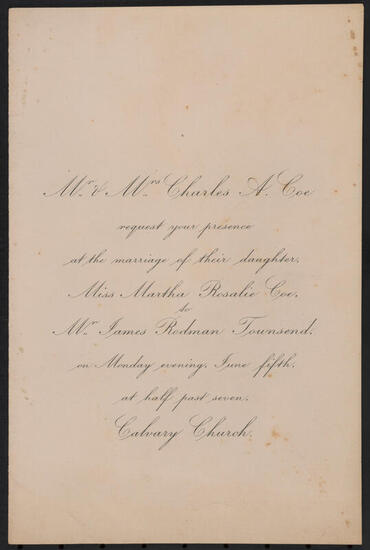 Mr. & Mrs. Charles A. Coe
request your presence
at the marriage of their daughter,
Miss Martha Rosalie Coe,
to
Mr. James Rodman Townsend,
on Monday evening, June fifth,
at half past seven,
Calvary Church.